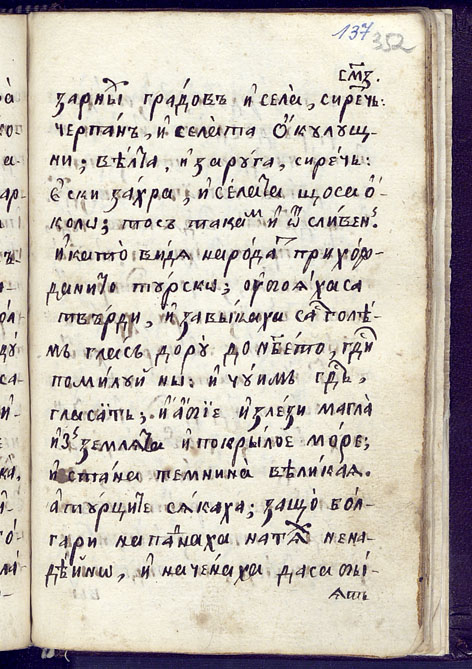 137 352
смз.
зарнїи градовъ и села, сиречь:
черпанъ, и селата ѻкулущ-
ни; вѣлїа, и заруга, сиречь:
ески захра, и селата щоса ѻ-
колу; тосъ такам и ѿ сливенъ.
и като видя народат прихож-
данито турско; ѹпояхаса
твърди, и забываха са голѣ-
мъ гласъ дору до нбето, гди
помилуй ны: и чуимъ гдь,
гласатъ; и абїе излези магла
изъ земляta и покрылое море;
и стана темнина вѣликая.
а турците сякаха; защо бол-
гари нападнаха натѧх нена-
дѣйно, и наченаха даса бїи-
ѧтъ